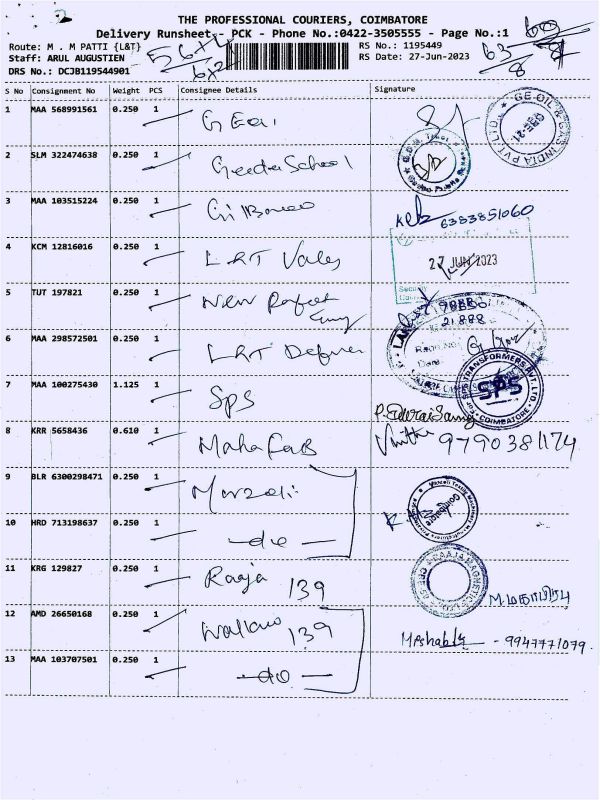 THE PROFESSIONAL COURIERS, COIMBATORE
Delivery Runsheet - PCK - Phone No.:0422-3505555 - Page No.:1
Route: M . M PATTI {L&T}
RS No.: 1195449
Staff: ARUL AUGUSTIEN
RS Date: 27-Jun-2023
DRS No.: DCJB119544901
56+4
6+2
63
8
S No Consignment No Weight PCS Consignee Details Signature
1 MAA 568991561 0.250 1
GE OIL & GAS INDIA PVT. LTD.
2 SLM 322474638 0.250 1 Geeda School
3 MAA 103515224 0.250 1
6383851060
4 KCM 12816016 0.250 1 L&T Vales
27 JUN 2023
Security
5 TUT 197821 0.250 1 New
21888
6 MAA 298572501 0.250 1 L&T Defence
7 MAA 100275430 1.125 1 SPS
SPS TRANSFORMERS PVT. LTD.
SPS
COIMBATORE
8 KRR 5658436 0.610 1 Maha Fab
9790381174
9 BLR 6300298471 0.250 1 Marzoli
Coimbatore
10 HRD 713198637 0.250 1 -do-
11 KRG 129827 0.250 1 Raaja 139
12 AMD 26650168 0.250 1 139
MAshably - 9947771079
13 MAA 103707501 0.250 1 -do-